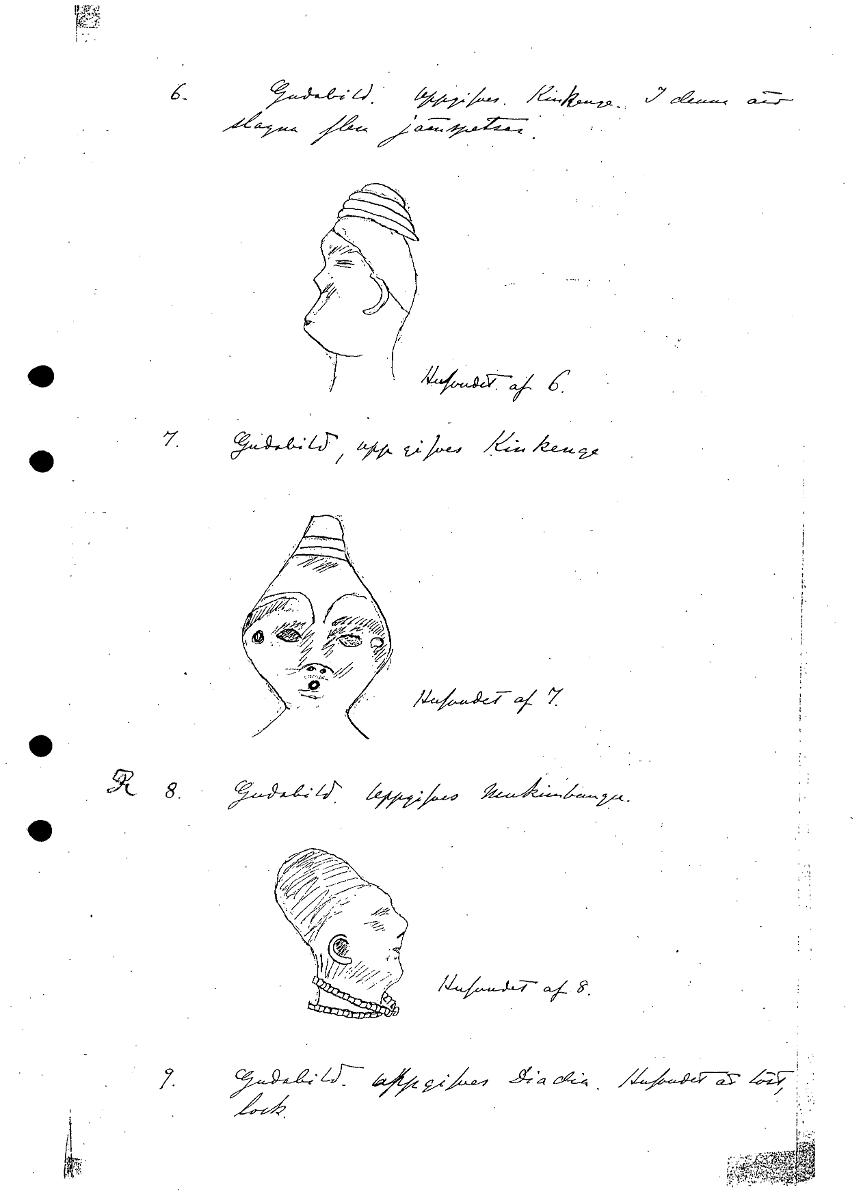 6. Gudabild. Uppgifves. Kinkenge. I denna äro
slagna flera järnspetsar.
Hufvudet af 6.
7. Gudabild, uppgifves Kinkenge
Hufvudet af 7.
R 8. Gudabild. Uppgifves Mukimbungu.
Hufvudet af 8.
9. Gudabild. Uppgifves Diadia. Hufvudet är löst,
lock.